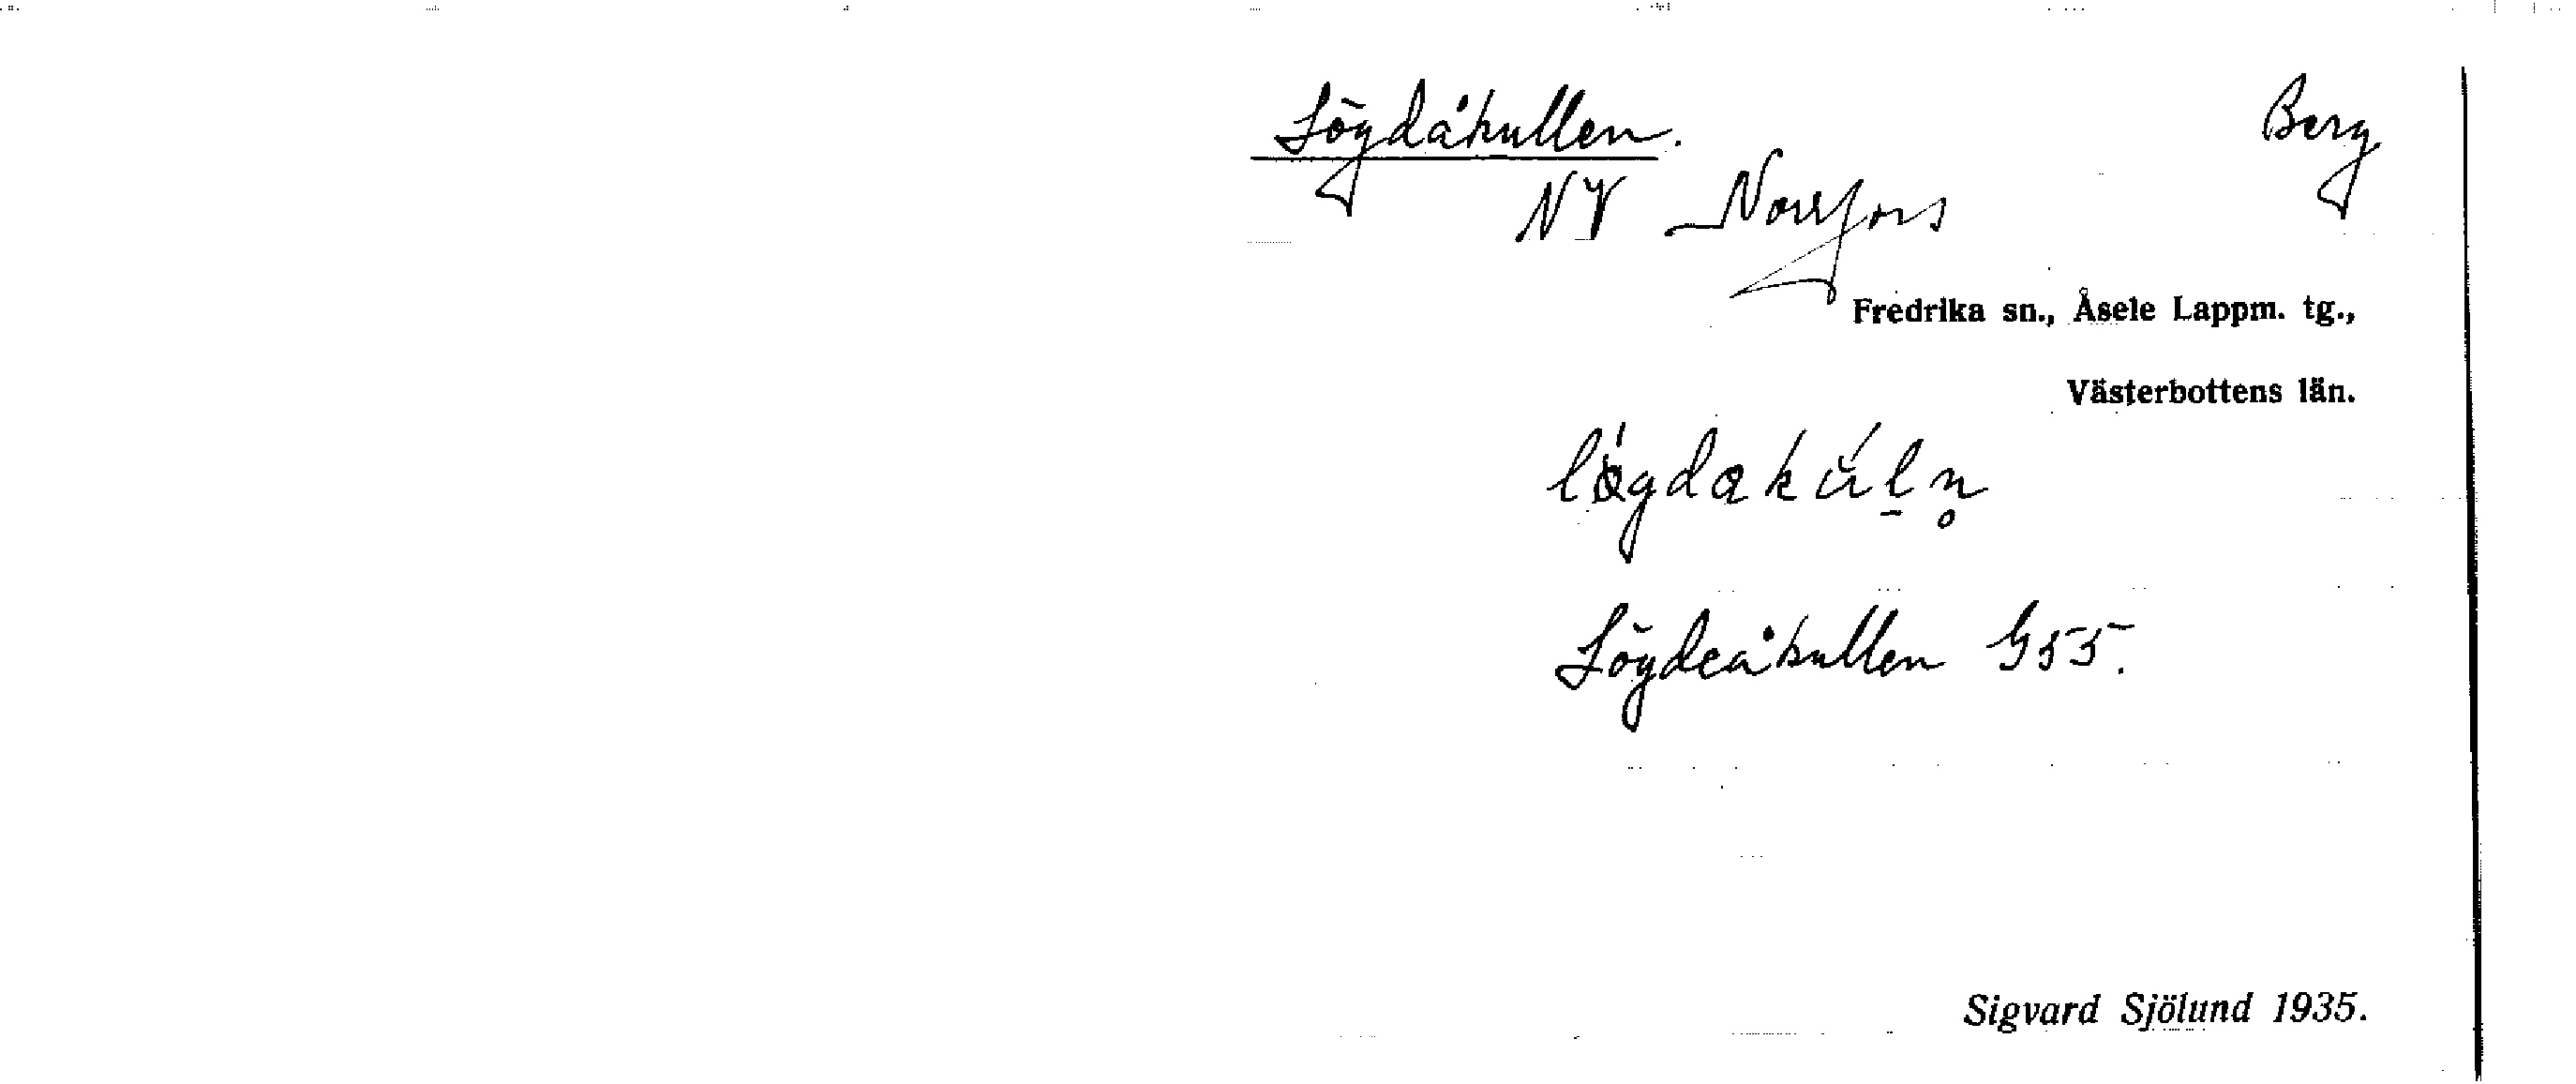 Lögdåkullen. Berg
NV Norrfors
Fredrika sn., Åsele Lappm. tg.,
Västerbottens län.
Lögdeåkullen G55.
Sigvard Sjölund 1935.